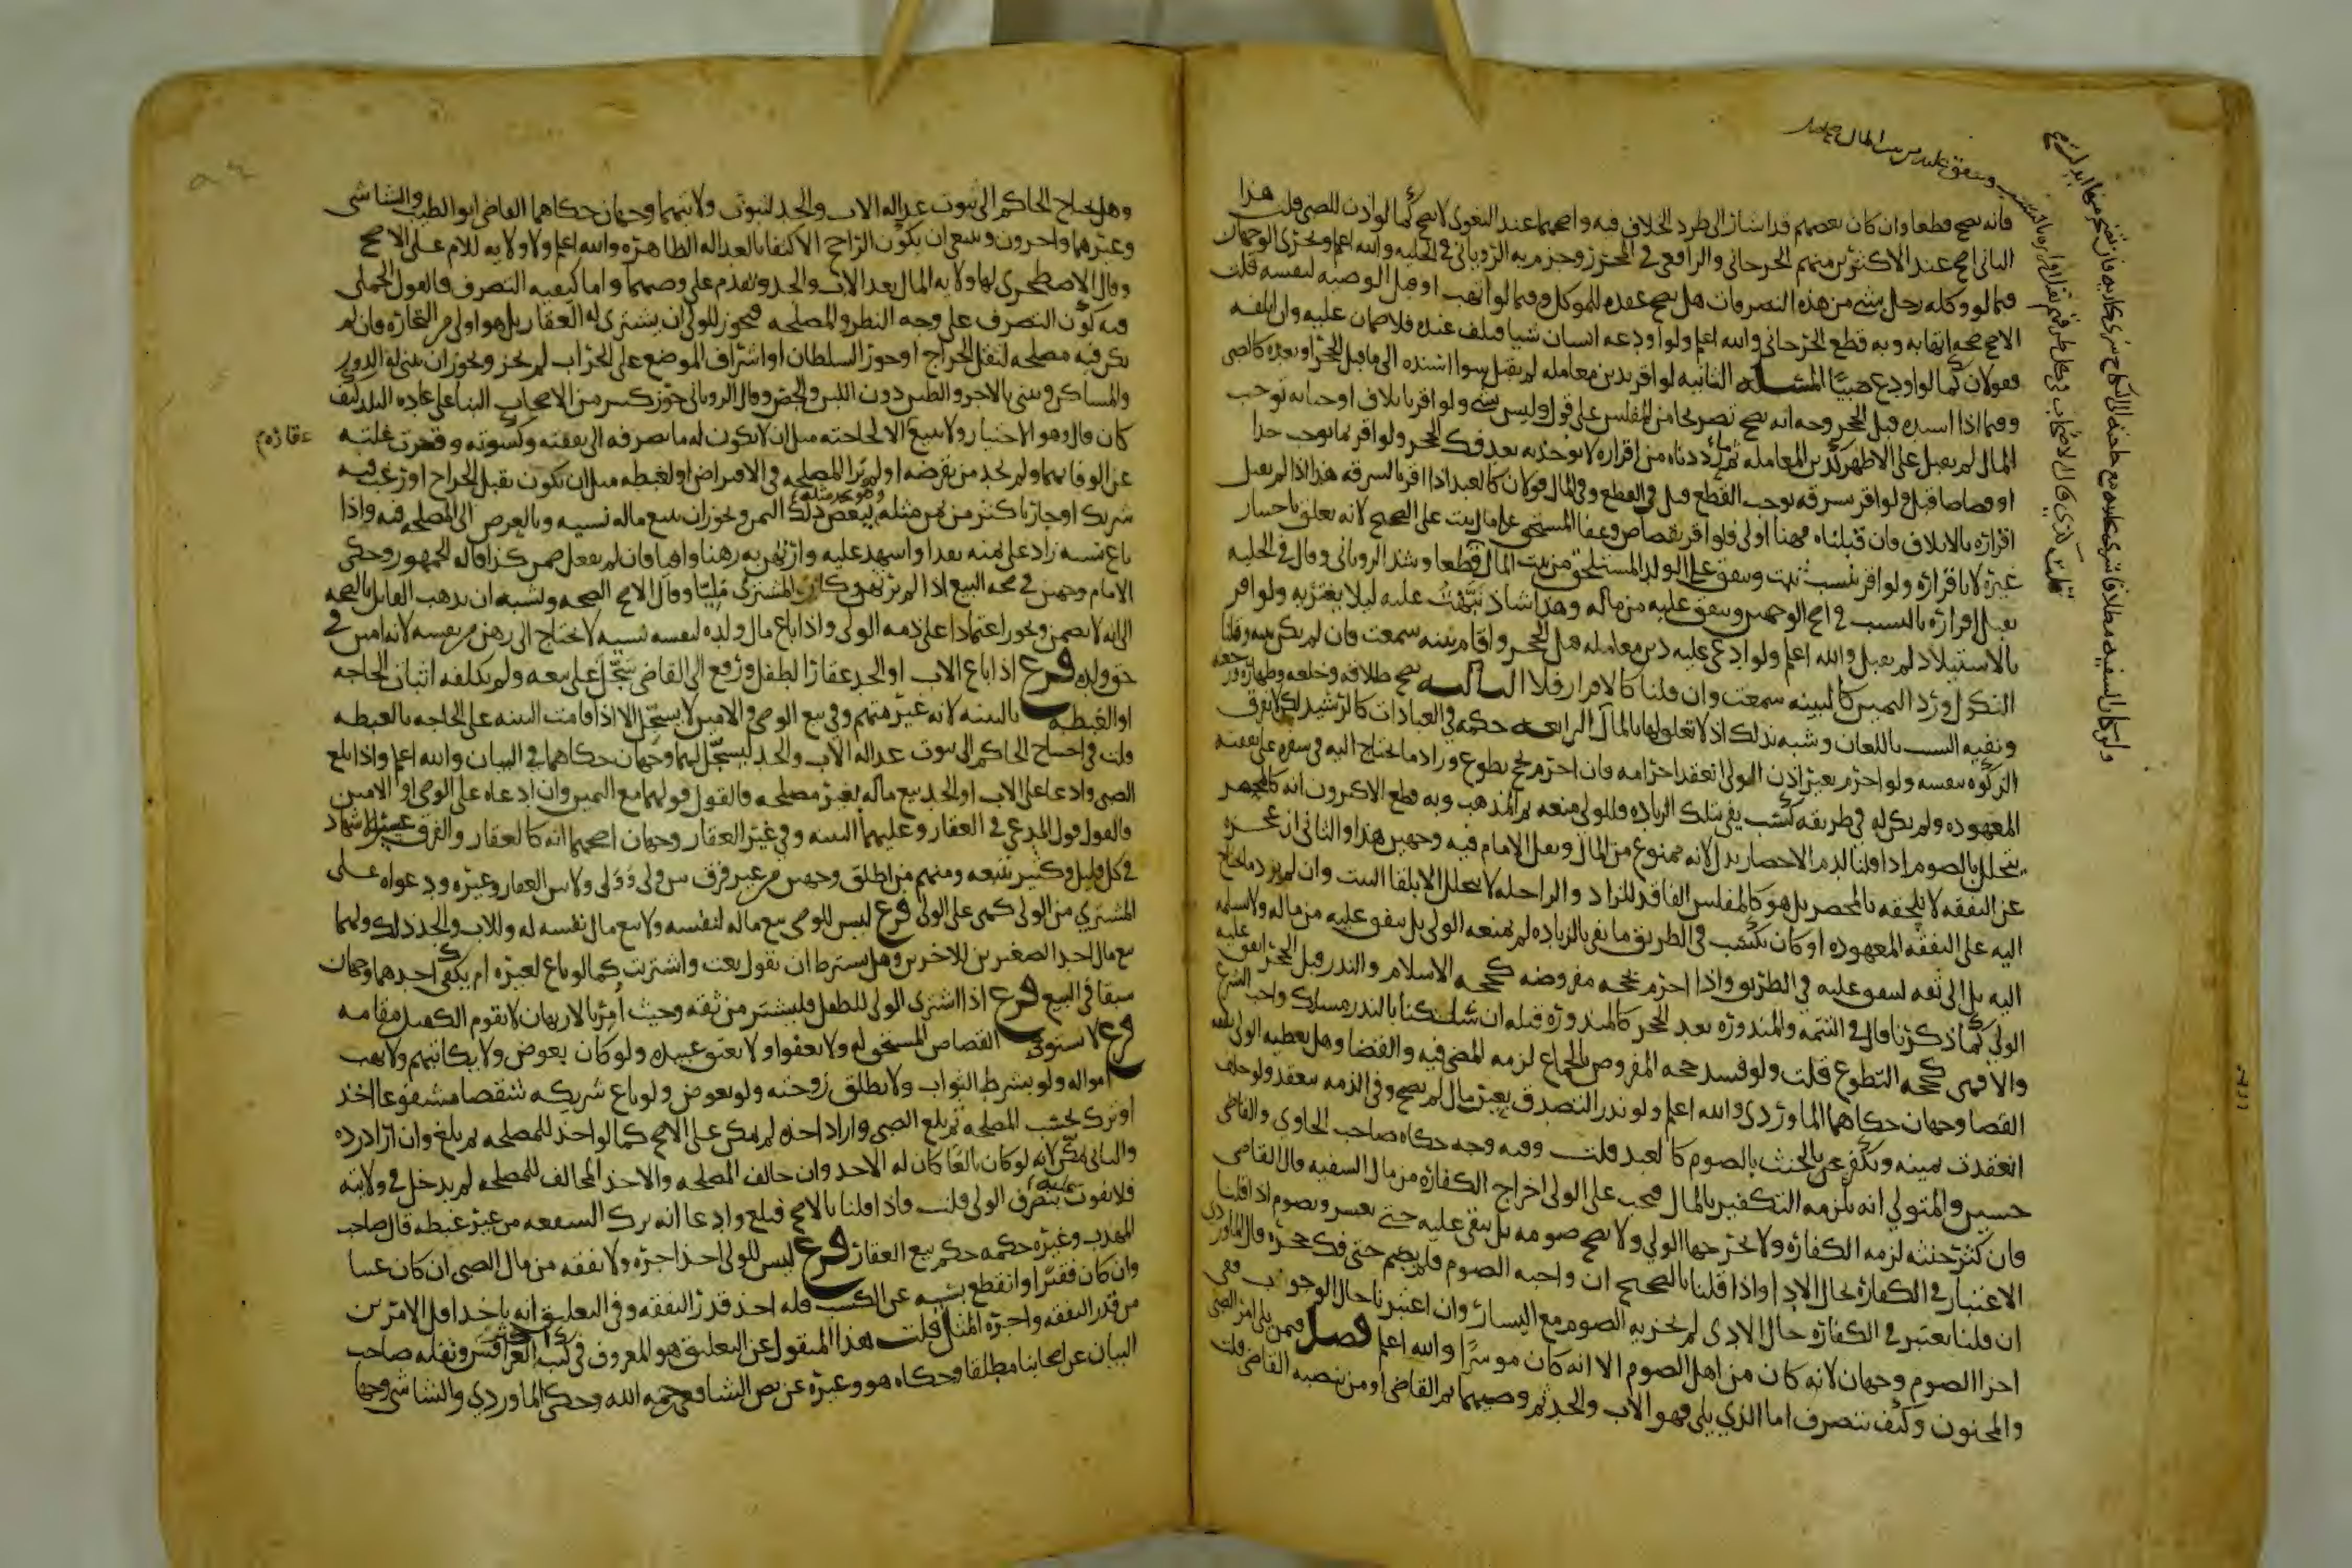 فانه يصح قطعا وان كان بعضهم قد اشار الى طرد الخلاف فيه واصحهما عند البغوى لا يصح كما لو اذن للصبى قلت هذا
الثانى اصح عند الاكثرين منهم الجرجانى والرافعى فى المحرر وجزم به الرويانى فى الحليه والله اعلم ويجرى الوجهان
فيما لو وكله رجل بشى من هذه التصرفات هل يصح عقده للموكل وفيما لو اتهب او قبل الوصيه لنفسه قلت
الاصح صحه اتهابه وبه قطع الجرجانى والله اعلم ولو اودعه انسان شيا فتلف عنده فلا ضمان عليه وان اتلفه
فقولان كما لو اودع صبيا المسله الثانيه لو اقر بدين معامله لم يقبل سوا اسنده الى ما قبل الحجر او بعده كالصبى
وفيما اذا اسنده قبل الحجر وجه انه يصح تخريجا من المفلس على قول وليس بشى ولو اقر باتلاف او جنايه توجب
المال لم يقبل على الاظهر كدين المعامله ثم ما رددناه من اقراره لا يوخذ به بعد فك الحجر ولو اقر بما يوجب حدا
او قصاصا قبل ولو اقر بسرقه توجب القطع قبل فى القطع وفى المال قولان كالعبد اذا اقر بالسرقه هذا اذا لم يقبل
اقراره بالاتلاف فان قبلناه فهنا اولى فلو اقر بقصاص وعفا المستحق على مال ثبت على الصحيح لانه تعلق باختيار
غيره لا باقراره ولو اقر بنسب ثبت وينفق على الولد المستلحق من بيت المال قطعا وشذ الرويانى وقال فى الحليه
يقبل اقراره بالنسب فى اصح الوجهين وينفق عليه من ماله وهذا شاذ نبهت عليه ليلا يغتر به ولو اقر
بالاستيلاد لم يقبل والله اعلم ولو ادعى عليه دين معامله قبل الحجر واقام بينه سمعت فان لم يكن بينه وقلنا
النكول ورد اليمين كالبينه سمعت وان قلنا كالاقرار فلا الثالثه يصح طلاقه وخلعه وظهاره ورجعته
ونفيه النسب باللعان وشبه ذلك اذ لا تعلق لها بالمال الرابعه حكمه فى العبادات كالرشيد لكن لا يفرق
الزكوه بنفسه ولو احرم بغير اذن الولى انعقد احرامه فان احرم بحج تطوع وزاد ما يحتاج اليه فى سفره على نفقته
المعهوده ولم يكن له فى طريقه كسب يفى بتلك الزياده فللولى منعه ثم المذهب وبه قطع الاكثرون انه كالمحصر
يتحلل بالصوم اذا قلنا لدم الاحصار بدل لانه ممنوع من المال ونقل الامام فيه وجهين هذا والثانى ان عجزه
عن النفقه لا يلحقه بالمحصر بل هو كالمفلس الفاقد للزاد والراحله لا يتحلل الا بلقا البيت وان لم يزد ما يحتاج
اليه على النفقه المعهوده او كان يكتسب فى الطريق ما يفى بالزياده لم يمنعه الولى بل ينفق عليه من ماله ولا يسلمه
اليه بل الى ثقه لينفق عليه فى الطريق واذا احرم بحجه مفروضه كحجه الاسلام والنذر قبل الحجر انفق عليه
الولى كما ذكرنا قال فى التتمه والمنذوره بعد الحجر كالمنذوره قبله ان سلكنا بالنذر مسلك واجب الشرع
والا فهى كحجه التطوع قلت ولو فسد حجه المفروض بالجماع لزمه المضى فيه والقضا وهل يعطيه الولى نفقه
القضا وجهان حكاهما الماوردى والله اعلم ولو نذر التصدق بعين مال لم يصح وفى الذمه ينعقد ولو حلف
انعقدت يمينه ويكفر عن الحنث بالصوم كالعبد قلت وفيه وجه حكاه صاحب الحاوى والقاضى
حسين والمتولى انه يلزمه التكفير بالمال فيجب على الولى اخراج الكفاره من مال السفيه قال القاضى
فان كثر حنثه لزمه الكفاره ولا يخرجها الولى ولا يصح صومه بل يبقى عليه حتى يعسر ويصوم اذا قلنا
الاعتبار فى الكفاره بحال الادا واذا قلنا بالصحيح ان واجبه الصوم فلم يصم حتى فك حجره قال الماوردى
ان قلنا يعتبر فى الكفاره حال الادى لم يجزيه الصوم مع اليسار وان اعتبرنا حال الوجوب ففى
اجزا الصوم وجهان لانه كان من اهل الصوم الا انه كان موسرا والله اعلم فصل فيمن يلى امر الصبى
والمجنون وكيف يتصرف اما الذى يلى فهو الاب والجد ثم وصيهما ثم القاضى او من ينصبه القاضى قلت
وينفق عليه من بيت المال
وهل يحتاج الحاكم الى ثبوت عداله الاب والجد لثبوت ولايتهما وجهان حكاهما القاضى ابو الطيب والشاشى
وغيرهما واخرون وينبغى ان يكون الراجح الاكتفا بالعداله الظاهره والله اعلم ولا ولايه للام على الاصح
وقال الاصطخرى لها ولايه المال بعد الاب والجد وتقدم على وصيهما واما كيفيه التصرف فالقول الجملى
فيه كون التصرف على وجه النظر والمصلحه فيجوز للولى ان يشترى له العقار بل هو اولى من التجاره فان لم
يكن فيه مصلحه لثقل الخراج او جور السلطان او اشراف الموضع على الخراب لم يجز ويجوز ان يبنى له الدور
والمساكن ويبنى بالاجر والطين دون اللبن والجص وقال الرويانى جوز كثير من الاصحاب البنا على عاده البلد كيف
كان قال وهو الاختيار ولا يبيع الا لحاجته مثل ان لا يكون له ما يصرفه الى نفقته وكسوته وقصرت غلته
عقاره
عن الوفا بهما ولم يجد من يقرضه او لم ير المصلحه فى الاقتراض او لغبطه مثل ان يكون ثقيل الخراج او رغب فيه
شريك او جار باكثر من ثمن مثله وهو يجد مثله ببعض ذلك الثمن ويجوز ان يبيع ماله نسيه وبالعرض اذا راى المصلحه فيه واذا
باع نسيه زاد على ثمنه نقدا واشهد عليه وارتهن به رهنا وافيا فان لم يفعل ضمن كذا قاله الجمهور وحكى
الامام وجهين فى صحه البيع اذا لم يرتهن وكان المشترى مليا وقال الاصح الصحه ويشبه ان يذهب القايل بالصحه
الى انه لا يضمن ويجوز اعتمادا على ذمه الولى واذا باع مال ولده لنفسه نسيه لا يحتاج الى رهن من نفسه لانه امين فى
حق ولده فرع اذا باع الاب او الجد عقارا لطفل ورفع الى القاضى سجل على بيعه ولم يكلفه اثبات الحاجه
او الغبطه بالبينه لانه غير متهم وفى بيع الوصى والامين لا يسجل الا اذا قامت البينه على الحاجه بالغبطه
قلت فى احتياج الحاكم الى ثبوت عداله الاب والجد ليسجل لهما وجهان حكاهما فى البيان والله اعلم واذا بلغ
الصبى وادعا على الاب او الجد بيع ماله لغير مصلحه فالقول قولهما مع اليمين وان ادعاه على الوصى او الامين
فالقول قول المدعى فى العقار وعليهما البينه وفى غير العقار وجهان اصحهما انه كالعقار والفرق عسر الاشهاد
فى كل قليل وكثير يبيعه ومنهم من اطلق وجهين من غير فرق بين ولى وولى ولا بين العقار وغيره ودعواه على
المشترى من الولى كهى على الولى فرع ليس للوصى بيع ماله لنفسه ولا بيع مال نفسه له وللاب والجد ذلك ولهما
بيع مال احد الصغيرين للاخر وهل يشترط ان يقول بعت واشتريت كما لو باع لغيره ام يكفى احدهما وجهان
سبقا فى البيع فرع اذا اشترى الولى للطفل فليشتر من ثقه وحيث امر بالارتهان لا يقوم الكفيل مقامه
فرع لا يستوفى القصاص المستحق له ولا يعفو ولا يعتق عبيده ولو كان بعوض ولا يكاتبهم ولا يهب
امواله ولو بشرط الثواب ولا يطلق زوجته ولو بعوض ولو باع شريكه شقصا مشفوعا اخذ
او ترك بحسب المصلحه ثم بلغ الصبى واراد اخذه لم يمكن على الاصح كما لو اخذ للمصلحه ثم بلغ وان اراد رده
والثانى يمكن لانه لو كان بالغا كان له الاخذ وان خالف المصلحه والاخذ المخالف للمصلحه لم يدخل فى ولايته
فلا يفوت بتصرف الولى قلت واذا قلنا بالاصح فبلغ وادعا انه ترك الشفعه من غير غبطه قال صاحب
المهذب وغيره حكمه حكم بيع العقار فرع ليس للولى اخذ اجره ولا نفقه من مال الصبى ان كان غنيا
وان كان فقيرا وانقطع بسببه عن الكسب فله اخذ قدر النفقه وفى التعليق انه ياخذ اقل الامرين
من قدر النفقه واجره المثل قلت هذا المنقول عن التعليق هو المعروف فى كتب العراقيين ونقله صاحب
البيان عن اصحابنا مطلقا وحكاه هو وغيره عن نص الشافعى رحمه الله وحكى الماوردى والشاشى وجها